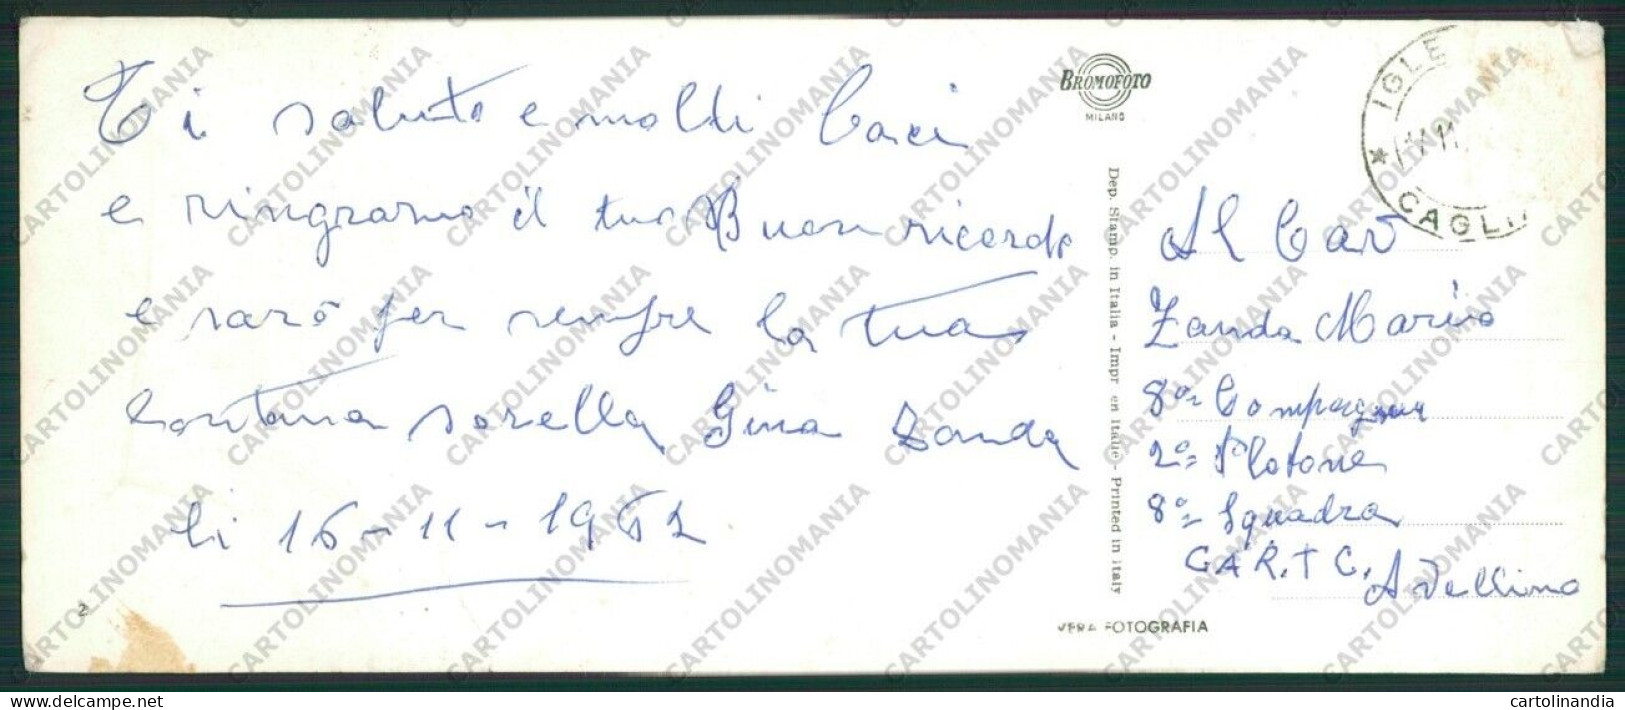 Ti saluto e moldi Baci
e ringraziо il tuo Buon ricordo
e sarò per sempre la tua
lontana sorella Gina Zanda
li 16-11-1962
2
BROMOFOTO
MILANO
Dep. Stamp. in Italia - Impr en Italie - Printed in Italy
VERA FOTOGRAFIA
IGLE
CAGLI
Al Car
Zanda Marino
8a= Compagnia
2o= Plotone
8a= Squadra
C.A.R.T.C. Avellino
CARTOLINOMANIA
cartolinandia